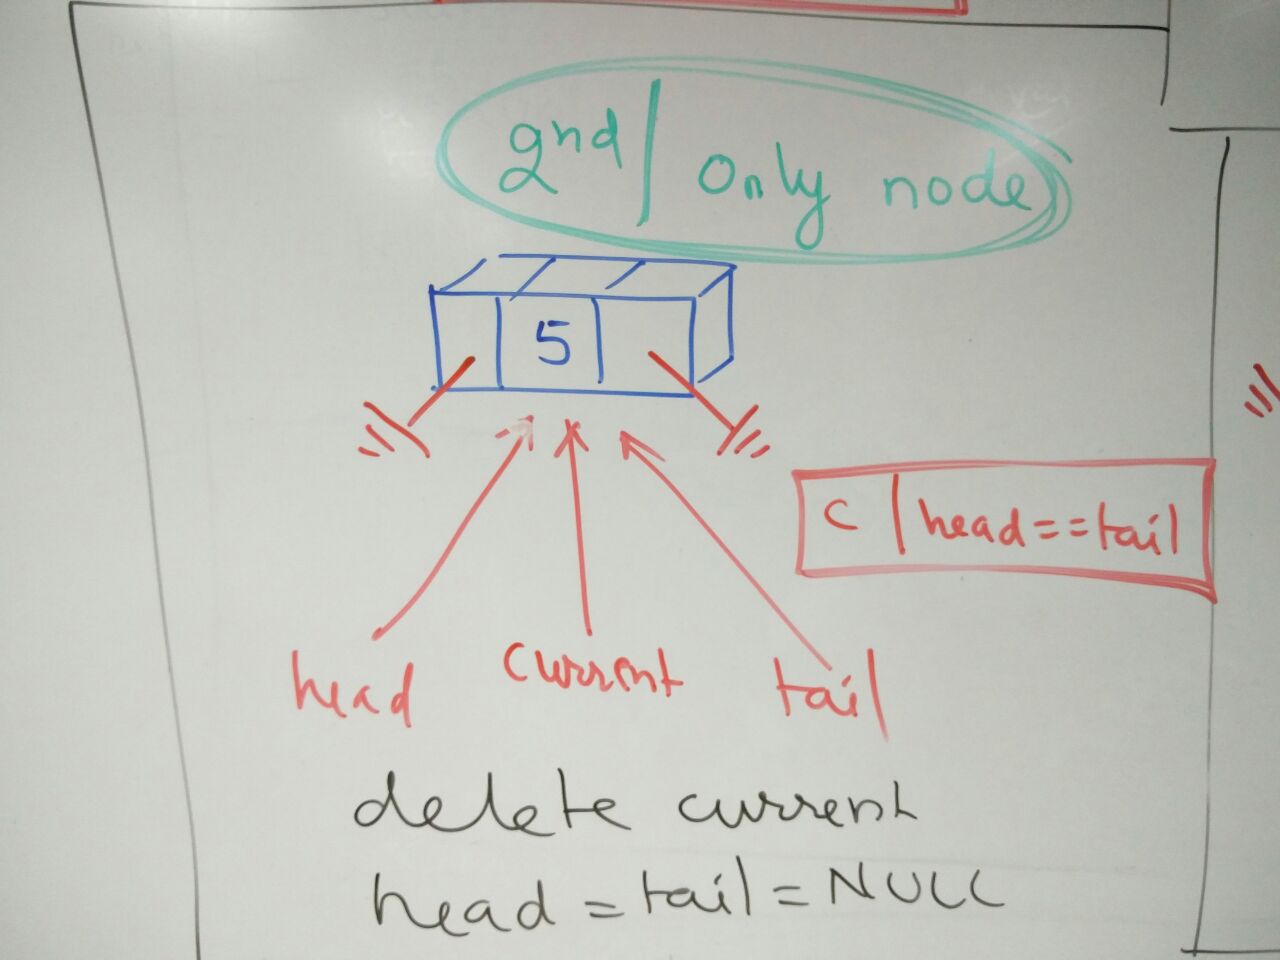 2nd | Only node
5
C | head==tail
head current tail
delete current
head = tail = NULL